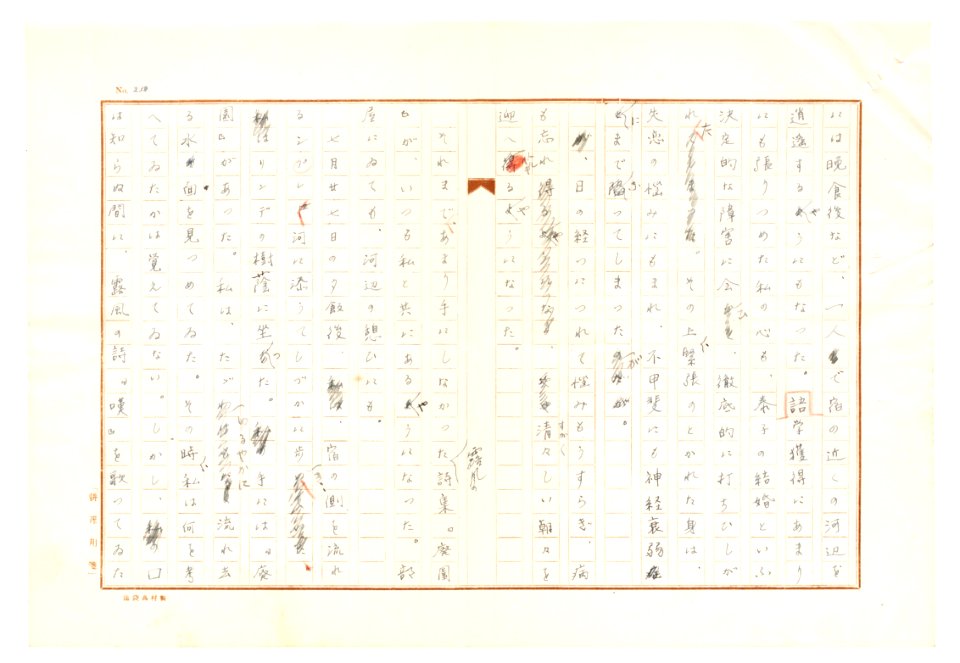 No. 
には晩食後など、一人で宿の近くの河辺を
逍遥するやうにもなつた。語学獲得にあまり
にも張りつめた私の心も、泰子の結婚といふ
決定的な障害に会ひ、徹底的に打ちひしが
れた。その上、緊張のとかれた身は、
失恋の悩みにもまれ、不甲斐にも神経衰弱
にまで陥つてしまつたが。
日の経つにつれて悩みもうすらぎ、病
も忘れ清々しい朝々を
迎へるやうになつた。
それまであまり手にしなかつた露風の詩集『廃園
』が、いつも私と共にあるやうになつた。部
屋にゐても、河辺の憩ひにも。
七月廿七日の夕飯後、宿の側を流れ
るシプレー河に添うてしづかに歩き、
リンデの樹蔭に坐つた。手には『廃
園』があつた。私は、たゞゆるやかに流れ去
る水面を見つめてゐた。その時、私は何を考
へてゐたかは覚えてゐない。しかし、口
は知らぬ間に、露風の詩『嘆』を歌つてゐた